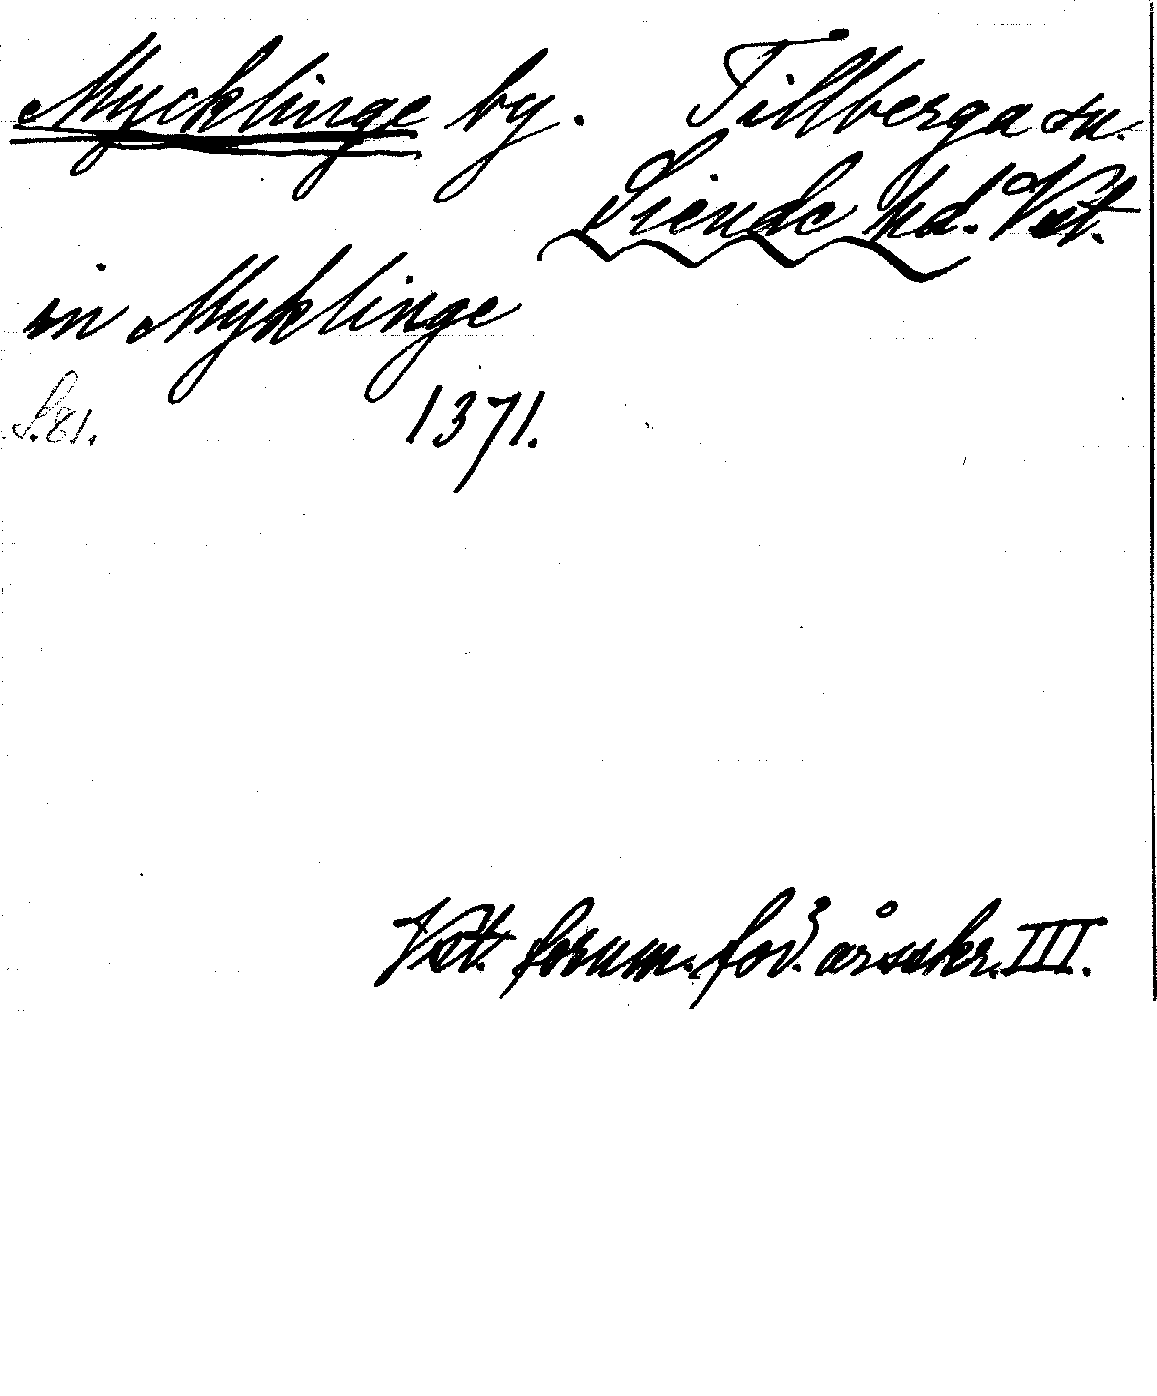 Mycklinge by. Tillberga sn.
Siende hd. Vstm.
in Myklinge
S. 81. 1371.
Vstl. fornm. för. årsskr. III.